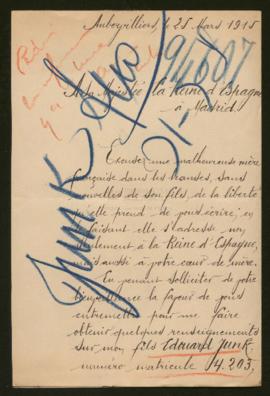 Aubervilliers, le 25 Mars 1915
A Sa Majesté la Reine d'Espagne
à Madrid.
Excusez une malheureuse mère
française dans les transes, sans
nouvelles de son fils, de la liberté
qu'elle prend de vous écrire, en
le faisant elle s'adresse non
seulement à la Reine d'Espagne,
mais aussi à votre cœur de mère.
En venant solliciter de votre
bienveillance la faveur de vous
entremettre pour me faire
obtenir quelques renseignements
sur mon fils Edouard Junk
numéro matricule 4.203,
Junk